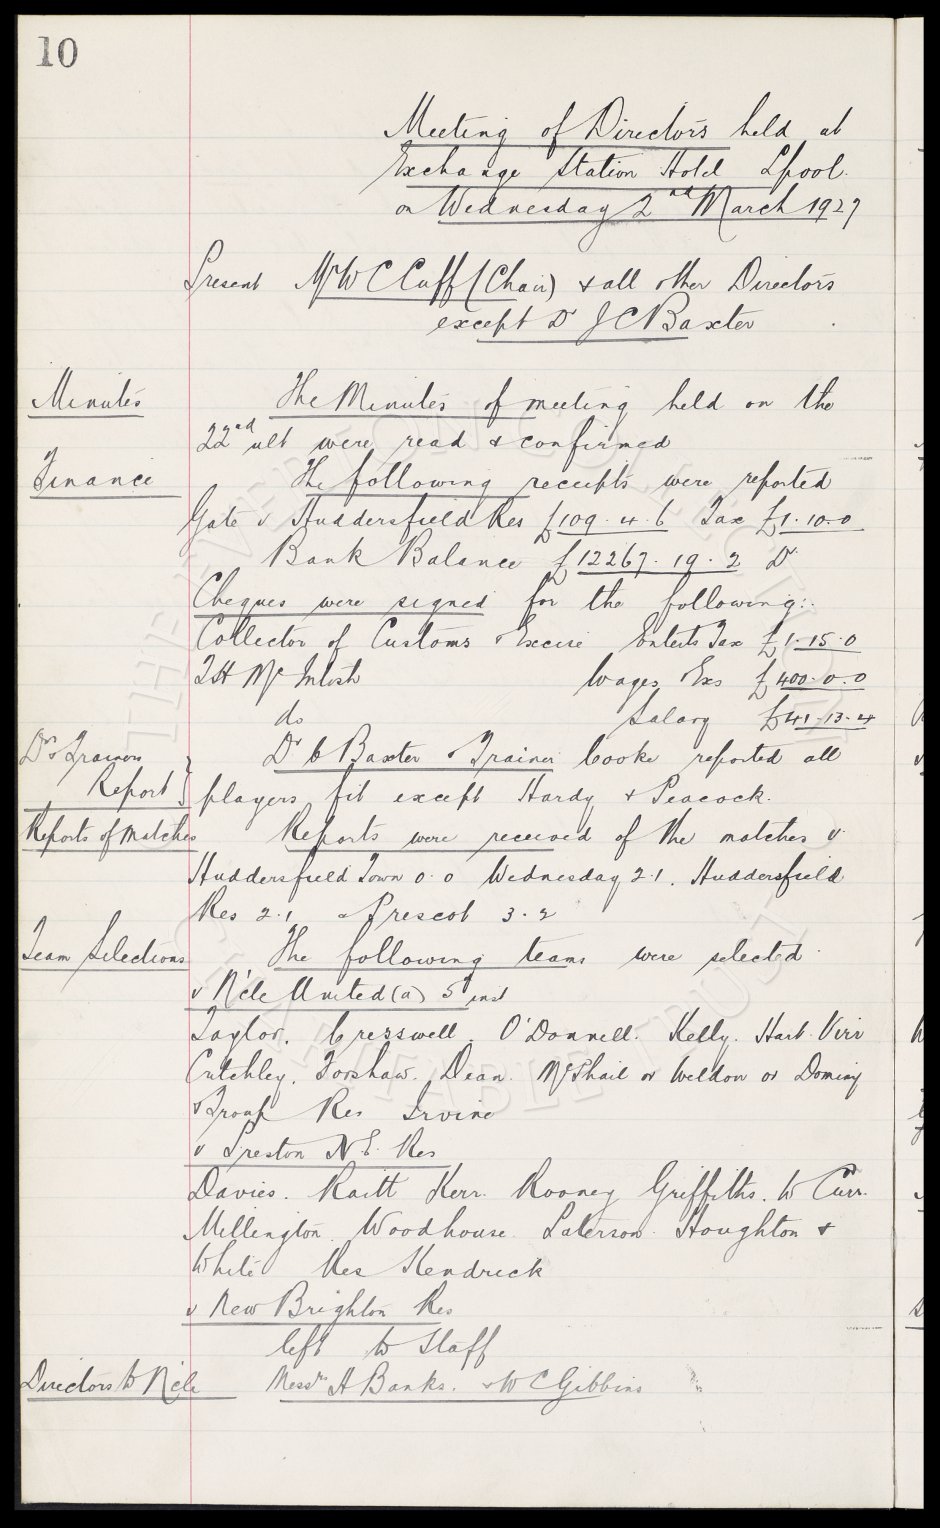 10
Meeting of Directors held at
Exchange Station Hotel Lpool.
on Wednesday 2nd March 1927
Present Mr W C Cuff (Chair) & all other Directors
except Dr J C Baxter
Minutes The Minutes of meeting held on the
22nd ult were read & confirmed
Finance The following receipts were reported
Gate v Huddersfield Res £109.4.6 Tax £1.10.0
Bank Balance £12267.19.2 Dr
Cheques were signed for the following:
Collector of Customs & Excise Enterts Tax £1.15.0
T H McIntosh Wages Exs £400.0.0
do Salary £41.13.4
Drs & Trainers Dr C Baxter & Trainer Cooke reported all
Report players fit except Hardy & Peacock.
Reports of Matches Reports were received of the matches v
Huddersfield Town 0.0 Wednesday 2.1. Huddersfield
Res 2.1 & Prescot 3.2
Team Selections The following teams were selected
v N'cle United (a) 5th inst
Taylor. Cresswell. O'Donnell. Kelly. Hart. Virr
Critchley. Forshaw. Dean. McPhail or Weldon or Dominy
& Troup Res Irvine
v Preston N E. Res
Davies. Raitt Kerr. Rooney Griffiths. W Curr.
Millington. Woodhouse. Paterson. Houghton &
White Res Kendrick
v New Brighton Res
left to Staff
Directors to N'cle Messrs A Banks. & W C Gibbins
THE EVERTON COLLECTION
CHARITABLE TRUST